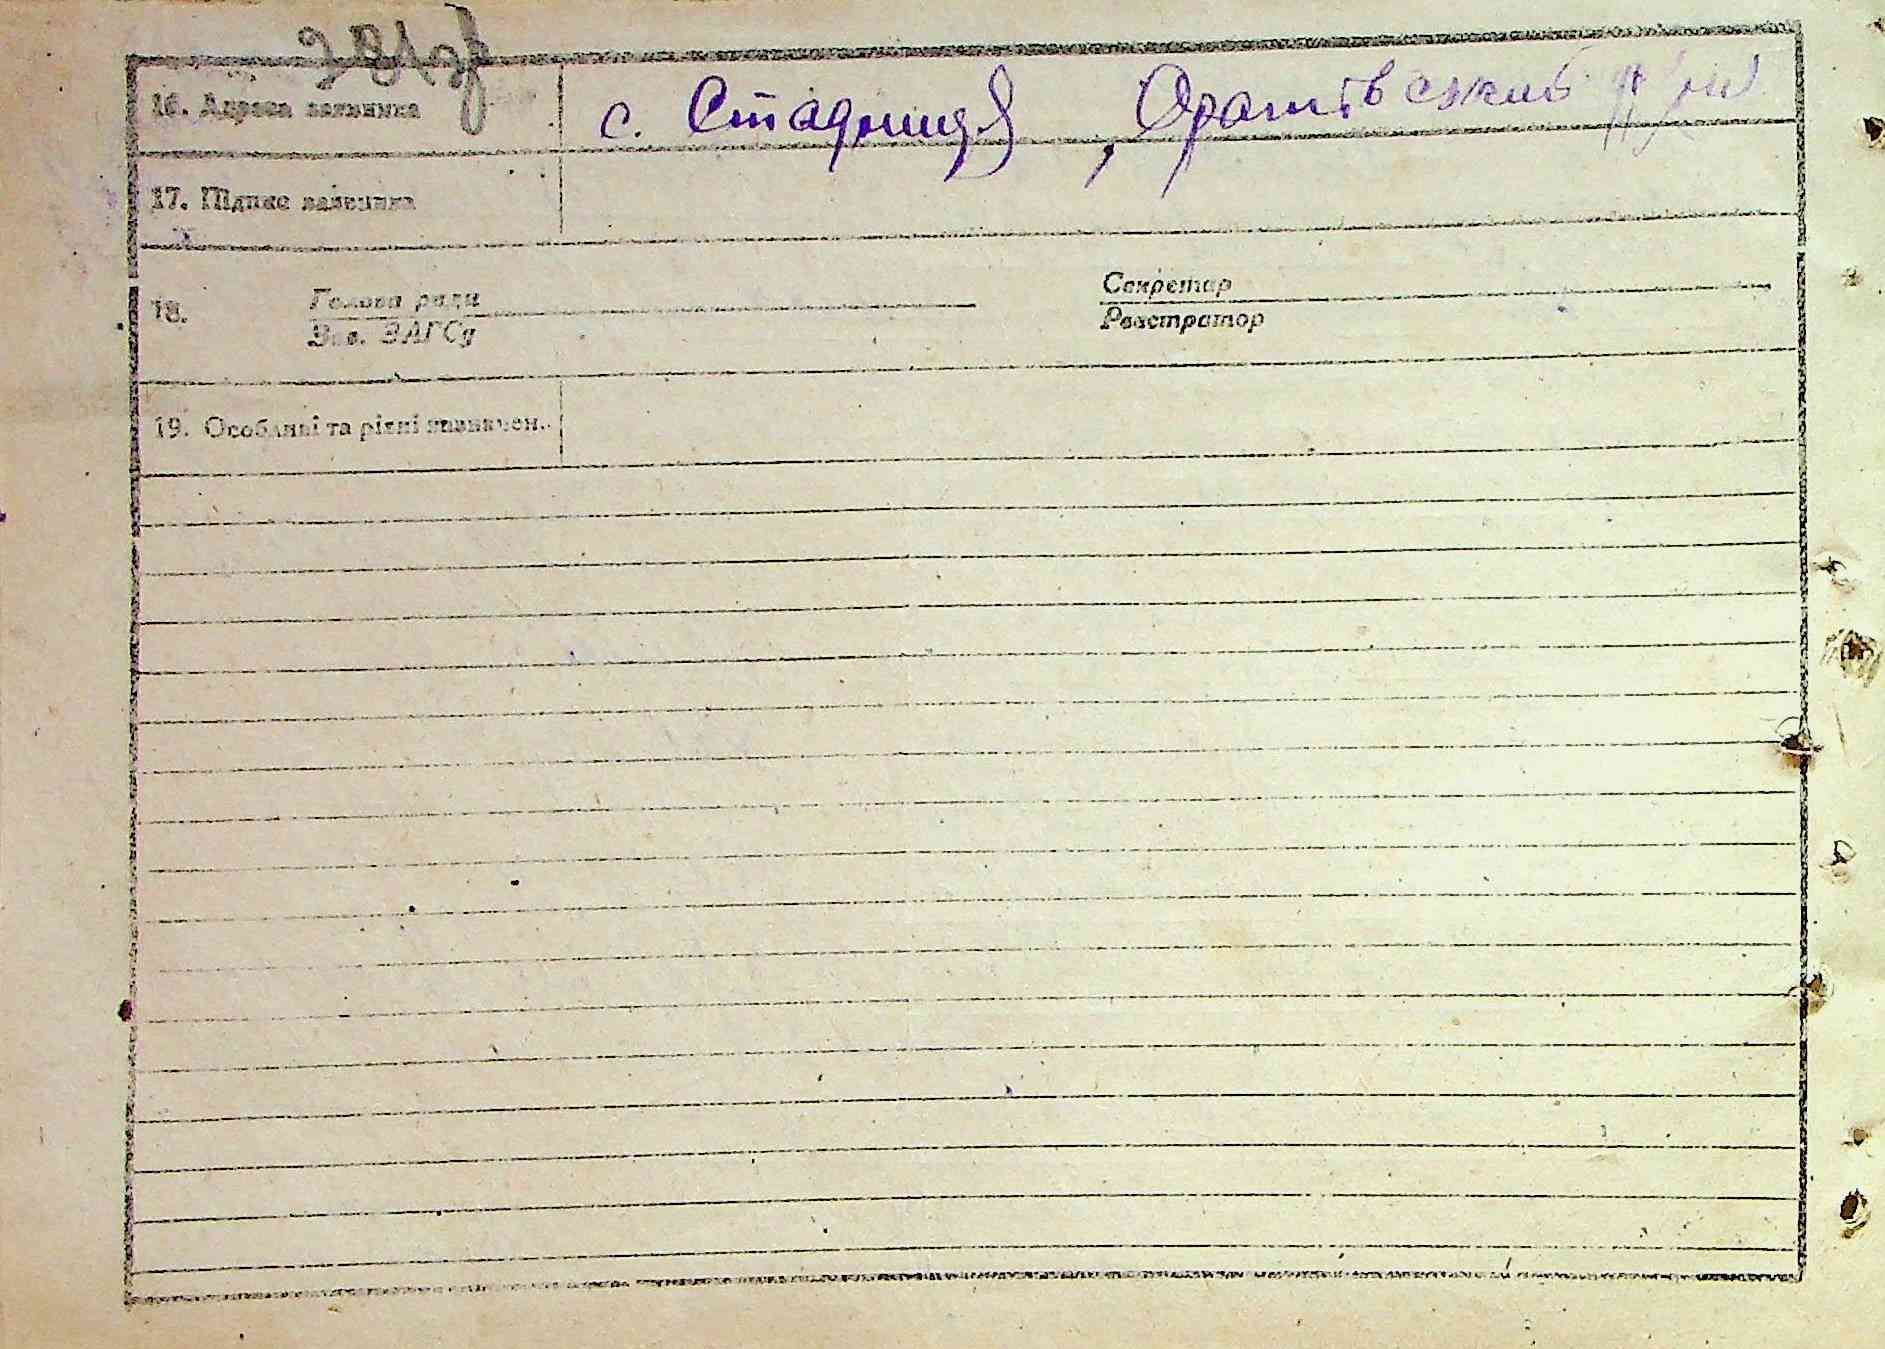 281зв
16. Адреса заявника с. Стадниця, Оратівський р-н
17. Підпис заявника
18. Голова ради Секретар
Зав. ЗАГСу Реєстратор
19. Особливі та різні зазначен.